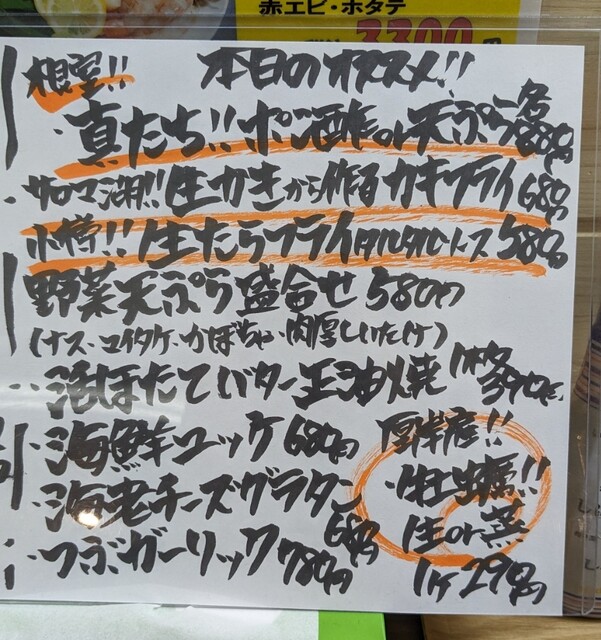 赤エビ・ホタテ
3300円
根室!! 本日のオススメ!!
・真たち!! ポン酢or天ぷら 各880円
・サロマ湖!! 生かきから作るカキフライ 680円
小樽!! 生たらフライタルタルソース 580円
野菜天ぷら盛合せ 580円
(ナス・マイタケ・かぼちゃ・肉厚しいたけ)
・活ほたてバター正油焼 1枚 390円
・海鮮ユッケ 680円
・海老チーズグラタン 680円
・つぶガーリック 780円
厚岸産!!
・牡蠣!!
生or蒸
1ケ290円